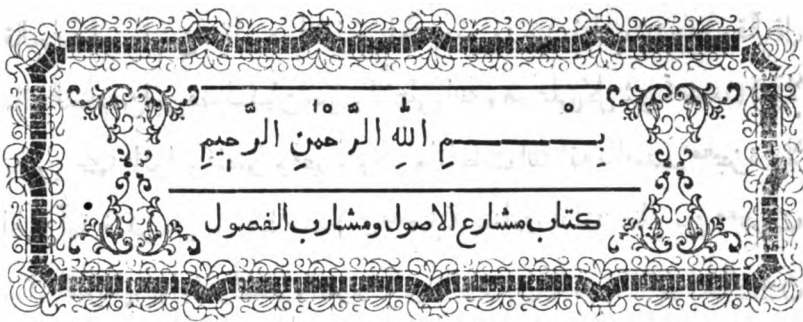 بِسْمِ اللهِ الرَّحْمٰنِ الرَّحِيمِ
كتاب مشارع الاصول ومشارب الفصول